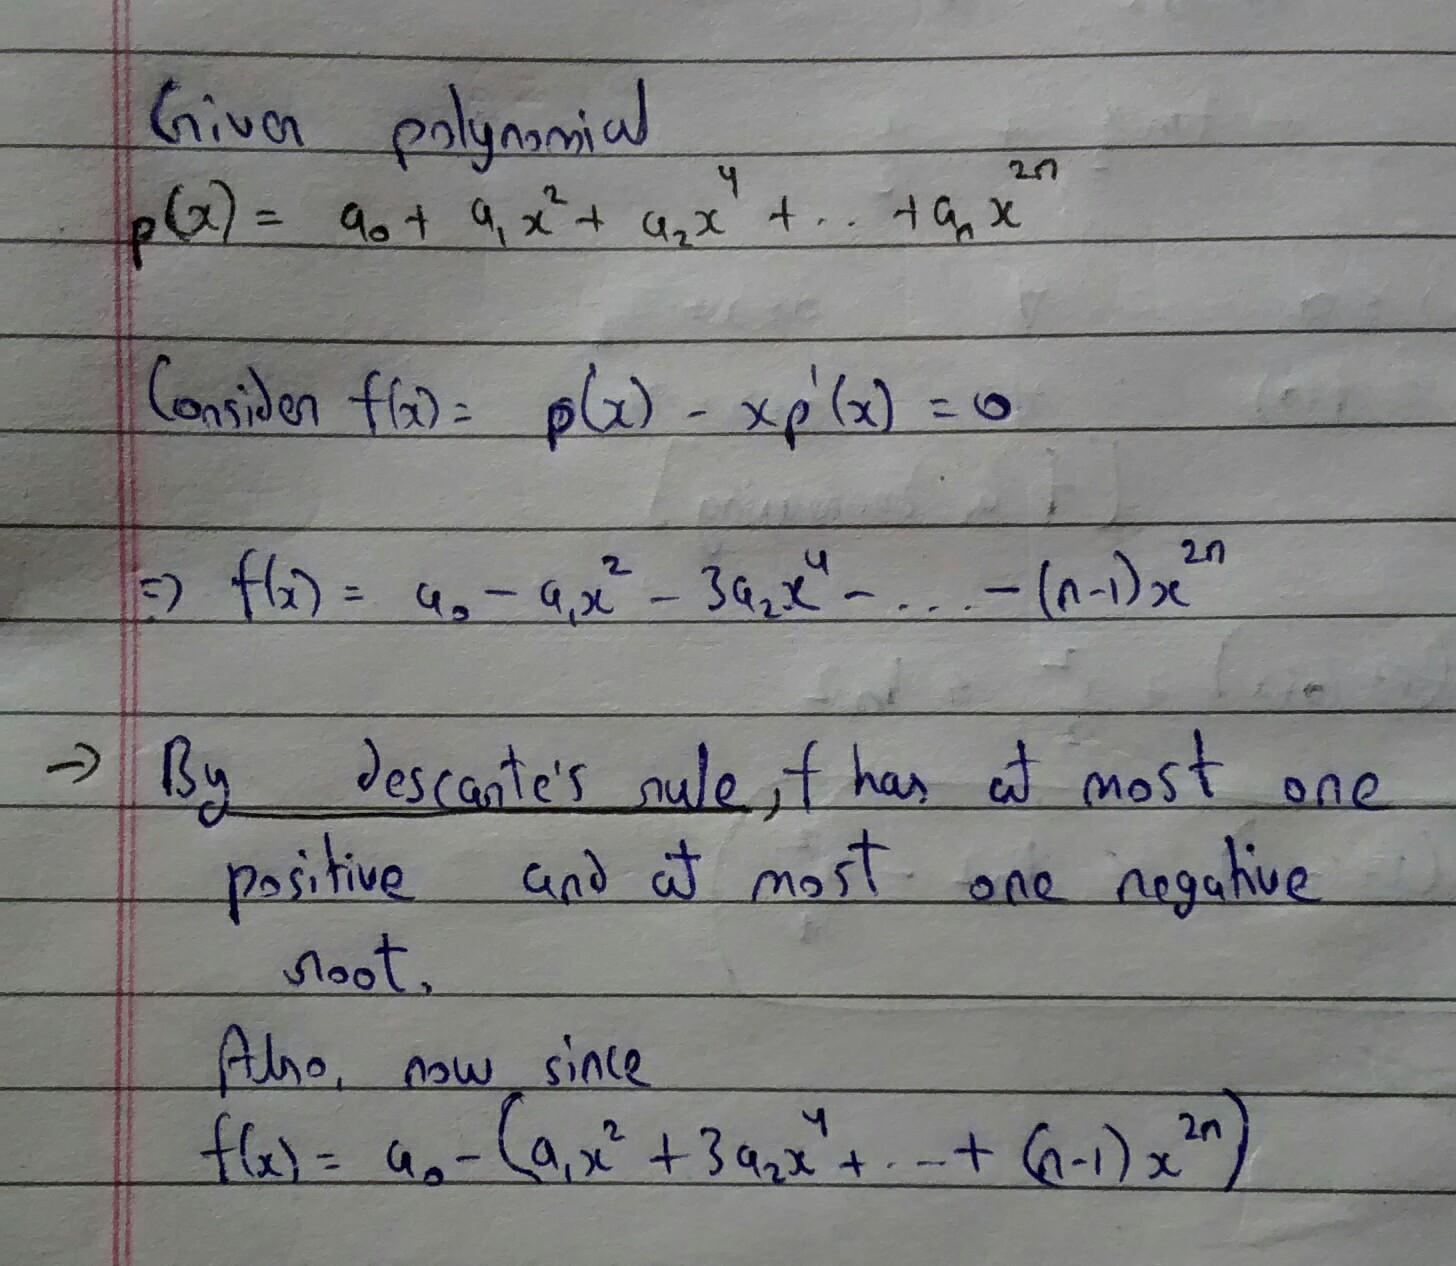 Given polynomial
p(x) = a₀ + a₁x² + a₂x⁴ + .. + aₙx²ⁿ
Consider f(x) = p(x) - xp'(x) = 0
=> f(x) = a₀ - a₁x² - 3a₂x⁴ - .... - (n-1)x²ⁿ
→ By descarte's rule, f has at most one
positive and at most one negative
root.
Also, now since
f(x) = a₀ - (a₁x² + 3a₂x⁴ + ... + (n-1)x²ⁿ)